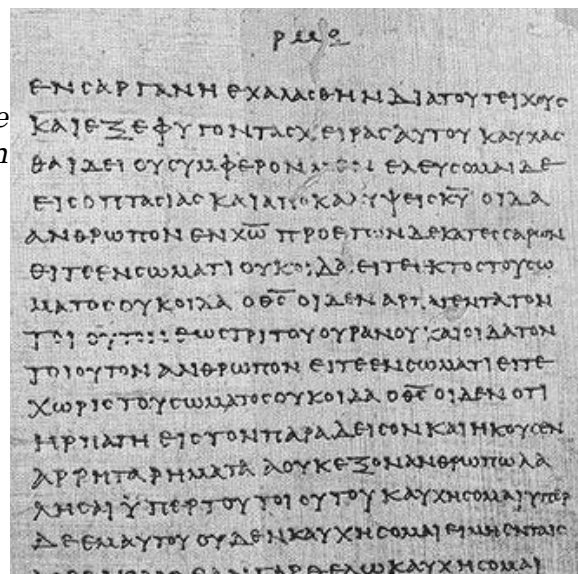 e
n
ΕΝϹΑΡΓΑΝΗΕΧΑΛΑϹΘΗΝΔΙΑΤΟΥΤΕΙΧΟΥϹ
ΚΑΙΕΞΕΦΥΓΟΝΤΑϹΧΕΙΡΑϹΑΥΤΟΥΚΑΥΧΑϹ
ΘΑΙΔΕΙΟΥϹΥΜΦΕΡΟΝ ΕΛΕΥϹΟΜΑΙΔΕ
ΕΙϹΟΠΤΑϹΙΑϹΚΑΙΑΠΟΚΑΛΥΨΕΙϹΚ̅Υ̅ΟΙΔΑ
ΑΝΘΡΩΠΟΝΕΝΧ̅Ω̅ΠΡΟΕΤΩΝΔΕΚΑΤΕϹϹΑΡΩΝ
ΕΙΤΕΕΝϹΩΜΑΤΙΟΥΚΟΙΔΑΕΙΤΕΕΚΤΟϹΤΟΥϹΩ
ΜΑΤΟϹΟΥΚΟΙΔΑΟΘ̅Ϲ̅ΟΙΔΕΝΑΡΠΑΓΕΝΤΑΤΟΝ
ΤΟΙΟΥΤΟΝΕΩϹΤΡΙΤΟΥΟΥΡΑΝΟΥΚΑΙΟΙΔΑΤΟΝ
ΤΟΙΟΥΤΟΝΑΝΘΡΩΠΟΝΕΙΤΕΕΝϹΩΜΑΤΙΕΙΤΕ
ΧΩΡΙϹΤΟΥϹΩΜΑΤΟϹΟΥΚΟΙΔΑΟΘ̅Ϲ̅ΟΙΔΕΝΟΤΙ
ΗΡΠΑΓΗΕΙϹΤΟΝΠΑΡΑΔΕΙϹΟΝΚΑΙΗΚΟΥϹΕΝ
ΑΡΡΗΤΑΡΗΜΑΤΑΑΟΥΚΕΞΟΝΑΝΘΡΩΠΩΛΑ
ΛΗϹΑΙΫΠΕΡΤΟΥΤΟΙΟΥΤΟΥΚΑΥΧΗϹΟΜΑΙΫΠΕΡ
ΔΕΕΜΑΥΤΟΥΟΥΔΕΝΚΑΥΧΗϹΟΜΑΙΕΙΜΗΕΝΤΑΙϹ
ΓΑΡΘΕΛΩΚΑΥΧΗϹΟΜΑΙ